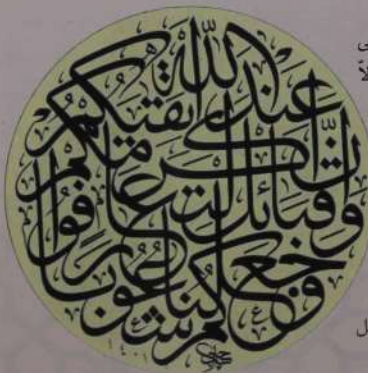 وَجَعَلْنٰكُمْ شُعُوبًا
وَقَبَائِلَ لِتَعَارَفُوا
اِنَّ اَكْرَمَكُمْ
عِنْدَ اللّٰهِ اَتْقٰيكُمْ
١٤٠١